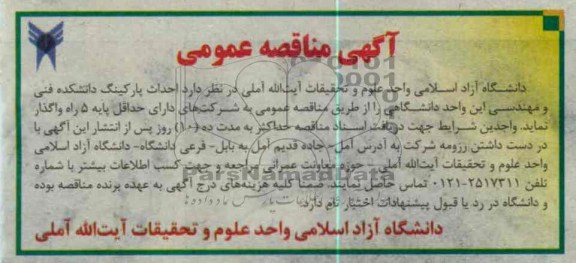 آگهی مناقصه عمومی
دانشگاه آزاد اسلامی واحد علوم و تحقیقات آیت‌الله آملی در نظر دارد احداث پارکینگ دانشکده فنی
و مهندسی این واحد دانشگاهی را از طریق مناقصه عمومی به شرکت‌های دارای حداقل پایه ۵ راه واگذار
نماید. واجدین شرایط جهت دریافت اسناد مناقصه حداکثر به مدت ده (۱۰) روز پس از انتشار این آگهی با
در دست داشتن رزومه شرکت به آدرس آمل- جاده قدیم آمل به بابل- فرعی دانشگاه- دانشگاه آزاد اسلامی
واحد علوم و تحقیقات آیت‌الله آملی - حوزه معاونت عمرانی مراجعه و جهت کسب اطلاعات بیشتر با شماره
تلفن ۲۵۱۷۳۱۱-۰۱۲۱ تماس حاصل نمایند. ضمنا کلیه هزینه‌های درج آگهی به عهده برنده مناقصه بوده
و دانشگاه در رد یا قبول پیشنهادات اختیار تام دارد.
دانشگاه آزاد اسلامی واحد علوم و تحقیقات آیت‌الله آملی
ParsNamadData